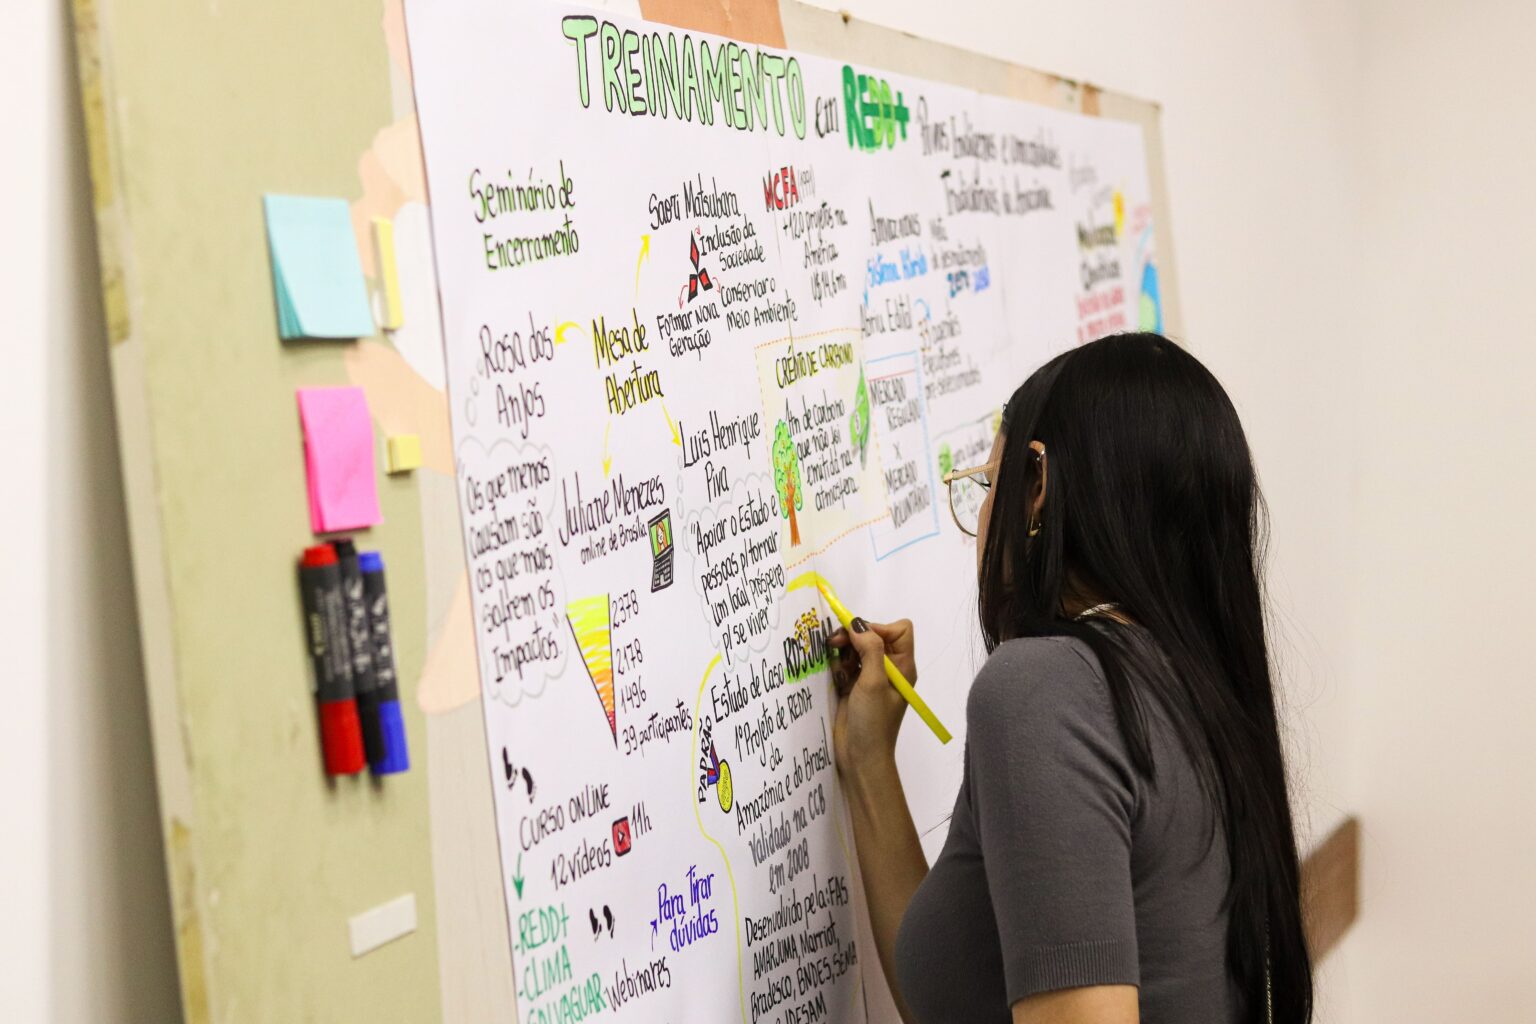 TREINAMENTO em REDD+ Povos Indígenas e Comunidades
Tradicionais da Amazônia.
Seminário de
Encerramento
Mesa de
Abertura
Rosa dos
Anjos
"Os que menos
causam são
os que mais
sofrem os
Impactos."
Saori Matsubara
Inclusão da
Sociedade
Formar Nova
Geração
Conservar o
Meio Ambiente
Juliane Menezes
online de Brasília
Luis Henrique
Piva
"Apoiar o Estado e
pessoas p/ tornar
um local próspero
p/ se viver"
2378
2178
1496
39 participantes
CURSO ONLINE
12 vídeos 11h
-REDD+
-CLIMA
SALVAGUAR
Webinares
Para tirar
dúvidas
MCFA (1991)
+120 projetos na
América
U$ 14,6m
CRÉDITO DE CARBONO
1tn de carbono
que não foi
emitida na
atmosfera
MERCADO
REGULADO
X
MERCADO
VOLUNTÁRIO
Amazonas
Sistema Híbrido
Abriu Edital
de desmatamento
zero
pré-selecionados
Estudo de Caso RDS JUMA
1º Projeto de REDD+
da
Amazônia e do Brasil
PADRÃO
Validado na CCB
em 2008
Desenvolvido pela: FAS
AMARJUMA, Marriot,
Bradesco, BNDES, SEMA
e IDESAM